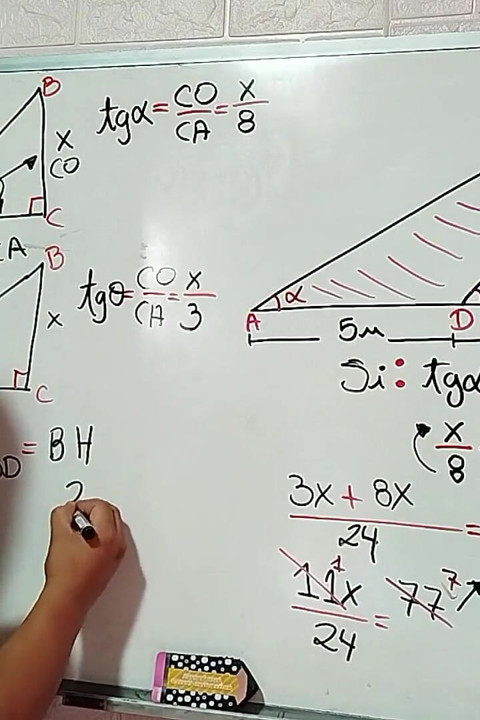 B
tgα = CO/CA = x/8
x
CO
C
A
B
tgθ = CO/CA = x/3
x
C
α
A
D
5m
Si: tgα
x/8
D = BH
2
3x + 8x / 24 =
11x / 24 = 77
1
7